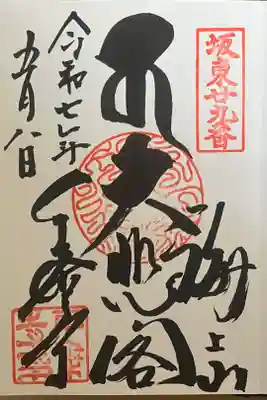 坂東廿九番
海上山
大悲閣
千葉寺
令和七年
五月八日